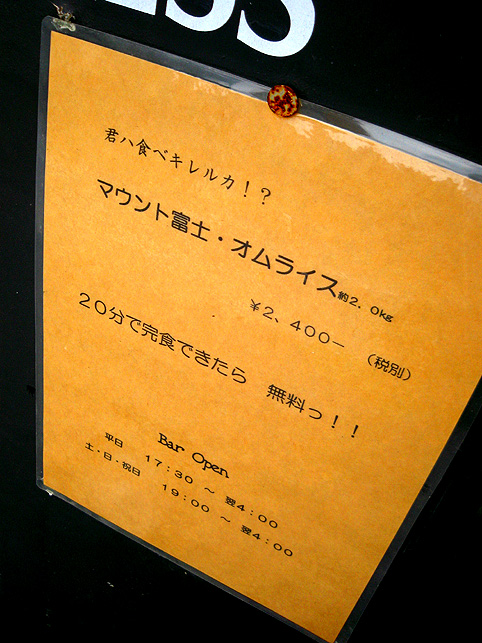 ESS
君ハ食ベキレルカ！？
マウント富士・オムライス約2．0kg
￥2、400－ （税別）
20分で完食できたら 無料っ！！
Bar Open
平日 17：30 ～ 翌4：00
土・日・祝日 19：00 ～ 翌4：00